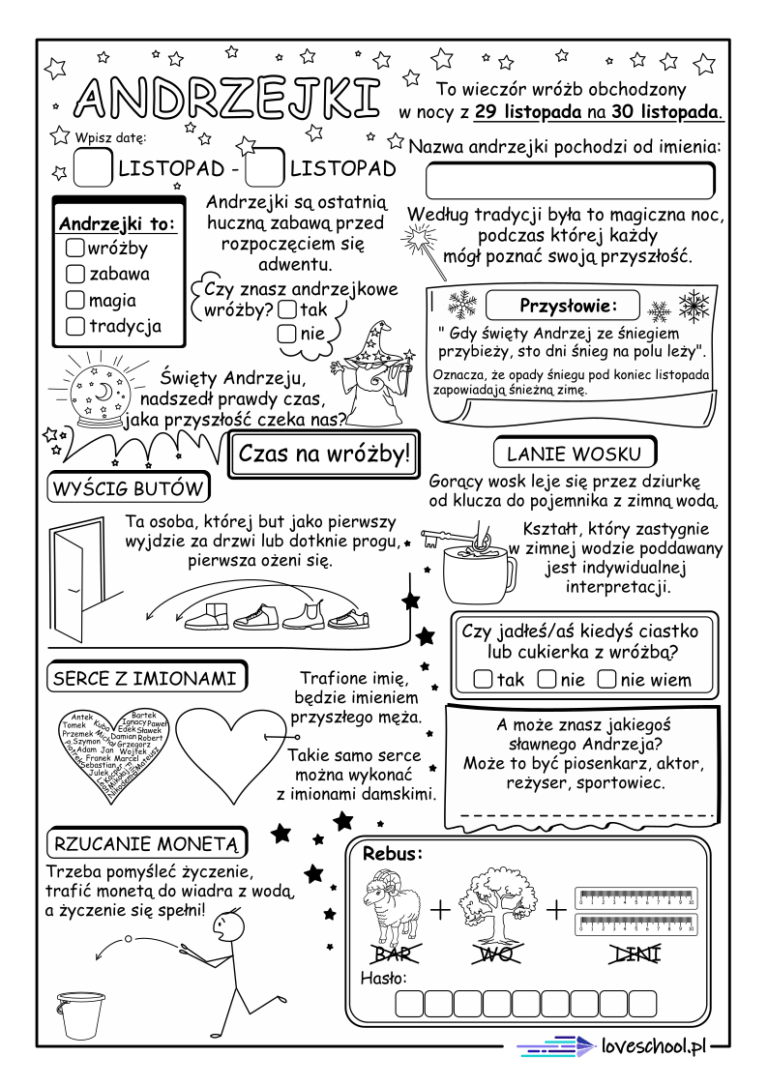 ANDRZEJKI
To wieczór wróżb obchodzony
w nocy z 29 listopada na 30 listopada.
Wpisz datę:
LISTOPAD - LISTOPAD
Nazwa andrzejki pochodzi od imienia:
Andrzejki to:
wróżby
zabawa
magia
tradycja
Andrzejki są ostatnią
huczną zabawą przed
rozpoczęciem się
adwentu.
Czy znasz andrzejkowe
wróżby? tak
nie
Według tradycji była to magiczna noc,
podczas której każdy
mógł poznać swoją przyszłość.
Przysłowie:
" Gdy święty Andrzej ze śniegiem
przybieży, sto dni śnieg na polu leży".
Oznacza, że opady śniegu pod koniec listopada
zapowiadają śnieżną zimę.
Święty Andrzeju,
nadszedł prawdy czas,
jaka przyszłość czeka nas?
Czas na wróżby!
WYŚCIG BUTÓW
Ta osoba, której but jako pierwszy
wyjdzie za drzwi lub dotknie progu,
pierwsza ożeni się.
LANIE WOSKU
Gorący wosk leje się przez dziurkę
od klucza do pojemnika z zimną wodą.
Kształt, który zastygnie
w zimnej wodzie poddawany
jest indywidualnej
interpretacji.
Czy jadłeś/aś kiedyś ciastko
lub cukierka z wróżbą?
tak nie nie wiem
SERCE Z IMIONAMI
Antek
Tomek
Kuba
Przemek
Michał
Szymon
Adam Jan
Patryk
Franek
Sebastian
Julek
Bartek
Ignacy
Paweł
Edek Sławek
Damian Robert
Grzegorz
Wojtek
Marcel
Kacper
Mikołaj
Leon
Nikodem
Mateusz
Trafione imię,
będzie imieniem
przyszłego męża.
Takie samo serce
można wykonać
z imionami damskimi.
A może znasz jakiegoś
sławnego Andrzeja?
Może to być piosenkarz, aktor,
reżyser, sportowiec.
RZUCANIE MONETĄ
Trzeba pomyśleć życzenie,
trafić monetą do wiadra z wodą,
a życzenie się spełni!
Rebus:
+ +
0 1 2 3 4 5 6 7 8 9 10
0 1 2 3 4 5 6 7 8 9 10
BAR WO LINI
Hasło:
loveschool.pl